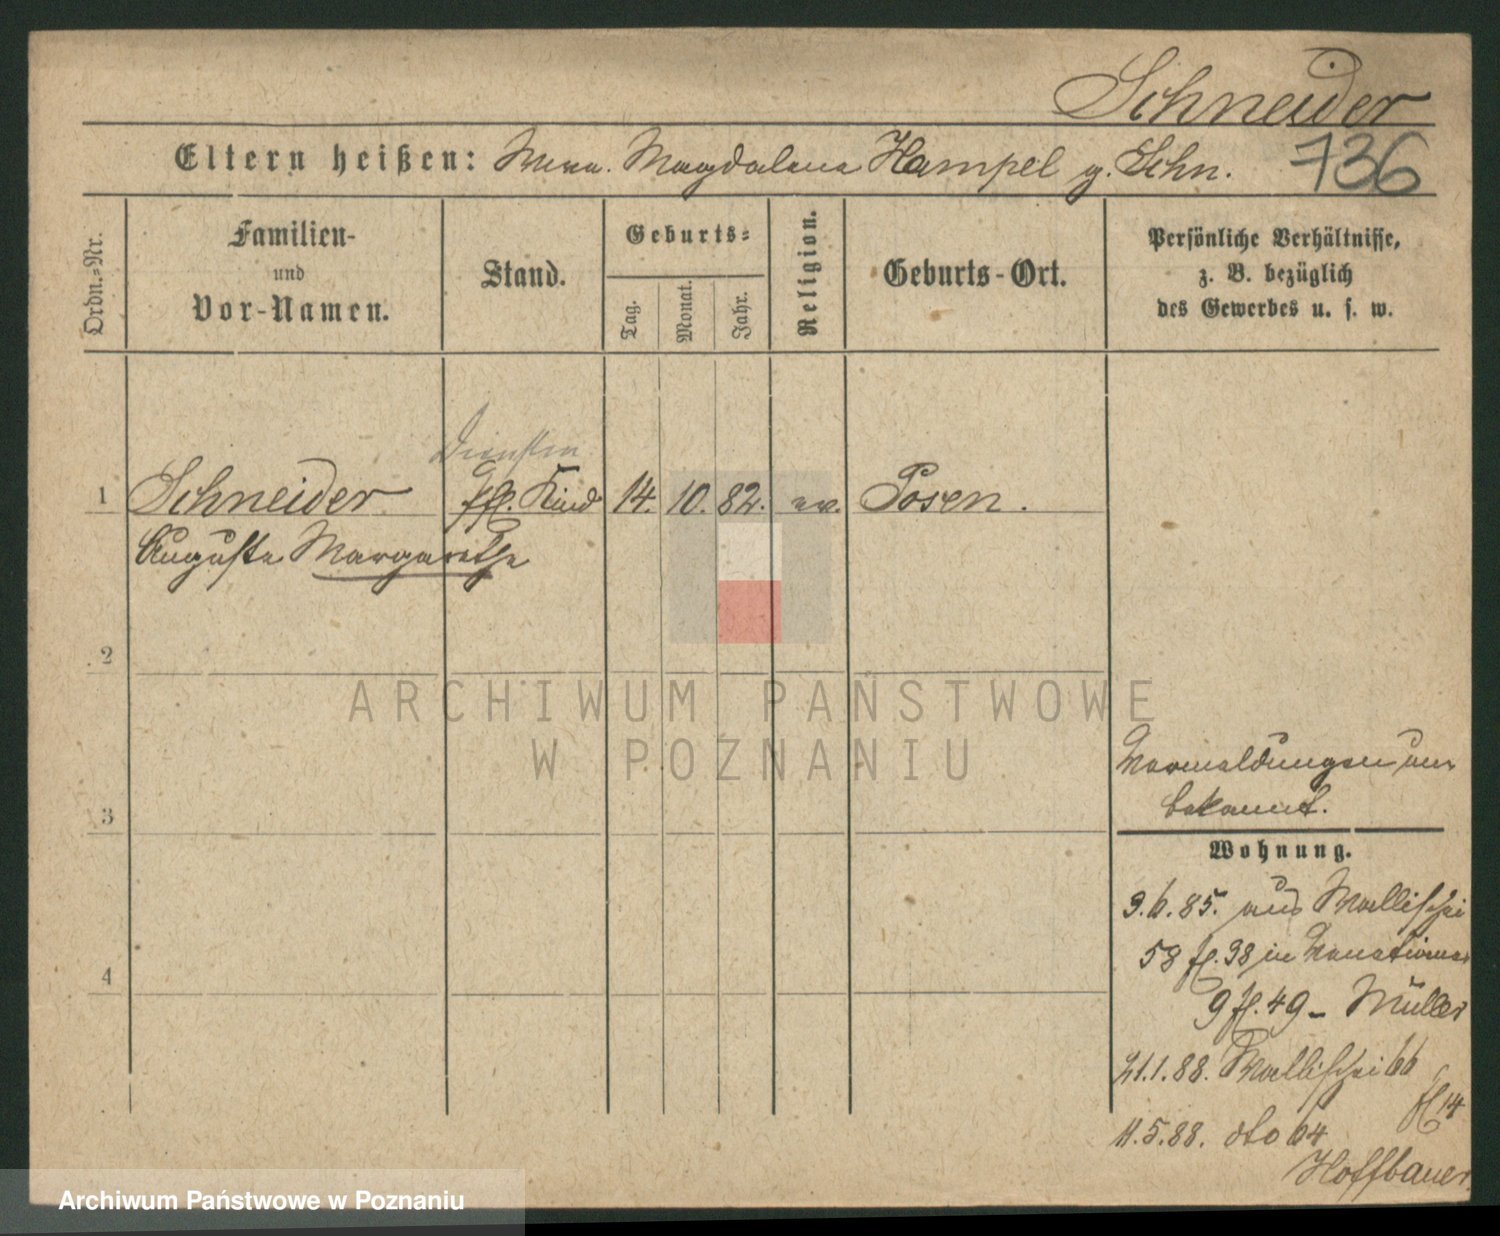 Schneider
Eltern heißen: Magdalena Hampel g. Schn. 736
Ordn.-Nr.
Familien-
und
Vor-Namen.
Stand.
Geburts-
Tag.
Monat.
Jahr.
Religion.
Geburts-Ort.
Persönliche Verhältnisse,
z. B. bezüglich
des Gewerbes u. s. w.
1 Schneider Kind 14. 10. 82. ev. Posen.
Auguste Margarethe
2
3
4
ARCHIWUM PAŃSTWOWE
W POZNANIU
bekannt.
Wohnung.
3.6.85. aus Wallischei
58 fl. 38 in Venetianer
9 fl. 49 - Müller
21.1.88. Wallischei 66
fl 14
11.5.88. dto 64
Hoffbauer
Archiwum Państwowe w Poznaniu